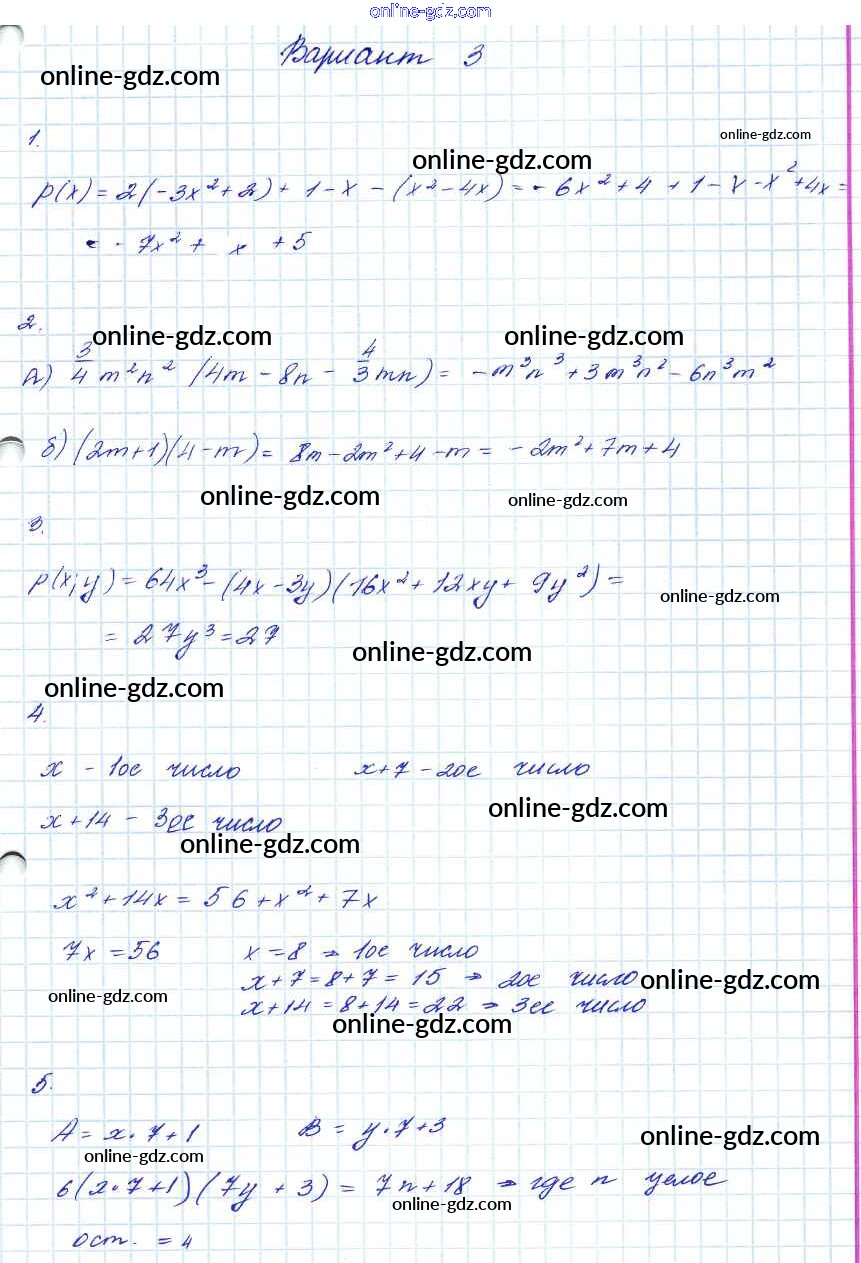 online-gdz.com
Вариант 3
online-gdz.com
1.
online-gdz.com
online-gdz.com
p(x) = 2(-3x² + 2) + 1 - x - (x² - 4x) = - 6x² + 4 + 1 - x - x² + 4x =
= - 7x² + x + 5
2.
online-gdz.com online-gdz.com
а) 3/4 m²n² (4m - 8n - 4/3 mn) = - m³n³ + 3m³n² - 6n³m²
б) (2m+1)(4-m) = 8m - 2m² + 4 - m = - 2m² + 7m + 4
online-gdz.com online-gdz.com
3.
p(x;y) = 64x³ - (4x - 3y)(16x² + 12xy + 9y²) =
online-gdz.com
= 27y³ = 27
online-gdz.com
online-gdz.com
4.
x - 1ое число x+7 - 2ое число
online-gdz.com
x+14 - 3ее число
online-gdz.com
x² + 14x = 56 + x² + 7x
7x = 56 x = 8 → 1ое число
x+7 = 8+7 = 15 → 2ое число
online-gdz.com
online-gdz.com
x+14 = 8+14 = 22 → 3ее число
online-gdz.com
5.
A = x·7+1 B = y·7+3
online-gdz.com
online-gdz.com
6(x·7+1)(7y+3) = 7n+18 → где n целое
online-gdz.com
ост. = 4